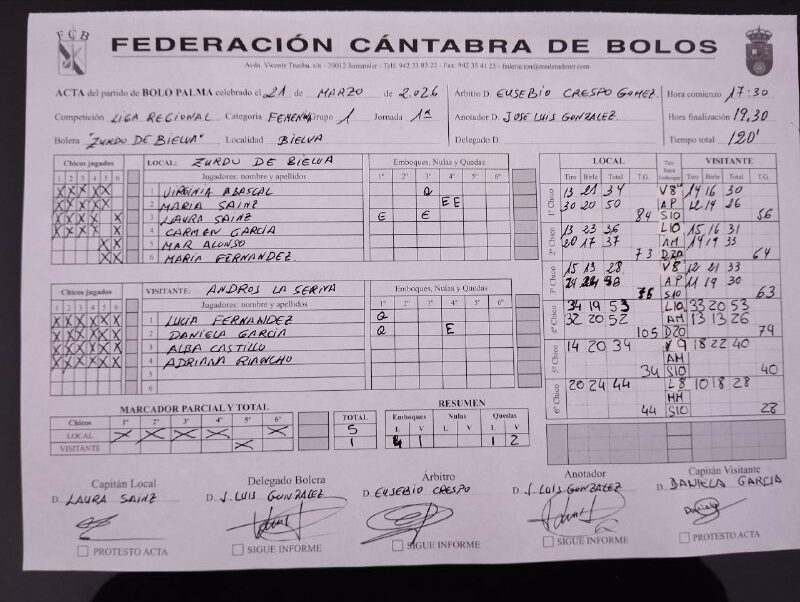 FCB
FEDERACIÓN CÁNTABRA DE BOLOS
Avda. Vicente Trueba, s/n - 39012 Santander - Telf. 942 53 83 22 - Fax: 942 35 41 23
ACTA del partido de BOLO PALMA celebrado el 21 de MARZO de 2.026
Arbitro D. EUSEBIO CRESPO GOMEZ.
Hora comienzo 17:30
Competición LIGA REGIONAL Categoría FEMENI Grupo 1 Jornada 1ª
Anotador D. JOSE LUIS GONZALEZ.
Hora finalización 19,30
Bolera "ZURDO DE BIELVA" Localidad BIELVA
Delegado D.
Tiempo total 120'
Chicos jugados
1 2 3 4 5 6
LOCAL: ZURDU DE BIELVA
Jugadores: nombre y apellidos
Emboques, Nulas y Quedas
1º 2º 3º 4º 5º 6º
1 VIRGINIA ABASCAL Q
X X X X X
2 MARIA SAINZ E E
X X X X X
3 LAURA SAINZ E E
X X X X X
4 CARMEN GARCÍA
X X X X X
5 MAR ALONSO
X X
6 MARIA FERNANDEZ.
X X
Chicos jugados
1 2 3 4 5 6
VISITANTE: ANDROS LA SERNA
Jugadores: nombre y apellidos
Emboques, Nulas y Quedas
1º 2º 3º 4º 5º 6º
1 LUCIA FERNANDEZ Q
X X X X X X
2 DANIELA GARCÍA Q E
X X X X X X
3 ALBA CASTILLO
X X X X X X
4 ADRIANA RIANCHO
X X X X X X
5
6
LOCAL VISITANTE
Tiro Birle Total T.G. Tiro Raya Emboque Tiro Birle Total T.G.
1º Chico
13 21 34 V8 14 16 30
30 20 50 AP 12 14 26
84 S10 56
2º Chico
13 23 36 L10 15 16 31
20 17 37 AM 14 19 33
73 D20 64
3º Chico
15 13 28 V8 12 21 33
24 AP 11 19 30
76 S10 63
4º Chico
34 19 53 L10 33 20 53
32 20 52 AM 13 13 26
105 D20 79
5º Chico
14 20 34 V9 18 22 40
AM
34 S10 40
6º Chico
20 24 44 L8 10 18 28
HH
44 S10 28
MARCADOR PARCIAL Y TOTAL
Chicos 1º 2º 3º 4º 5º 6º TOTAL
LOCAL X X X X X 5
VISITANTE X 1
RESUMEN
Emboques Nulas Quedas
L V L V L V
4 1 1 2
Capitán Local
D. LAURA SAINZ
PROTESTO ACTA
Delegado Bolera
D. J. LUIS GONZALEZ
SIGUE INFORME
Árbitro
D. EUSEBIO CRESPO
SIGUE INFORME
Anotador
D. J. LUIS GONZALEZ
SIGUE INFORME
Capitán Visitante
D. DANIELA GARCIA
Daniela
PROTESTO ACTA